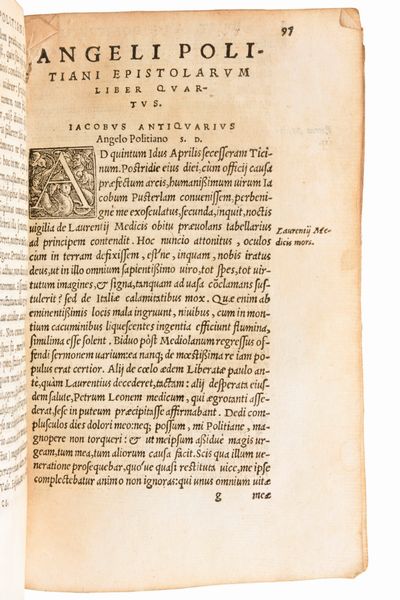 97
ANGELI POLI-
TIANI EPISTOLARVM
LIBER QVAR-
TVS.
IACOBVS ANTIQVARIVS
Angelo Politiano S. D.
AD quintum Idus Aprilis secesseram Tici
num. Postridie eius diei, cùm officij causa
præfectum arcis, humanißimum uirum Ia
cobum Pusterlam conuenissem, perbeni-
gnè me exosculatus, secunda, inquit, noctis
uigilia de Laurentij Medicis obitu præuolans tabellarius
ad principem contendit. Hoc nuncio attonitus, oculos
cum in terram defixissem, est'ne, inquam, nobis iratus
deus, ut in illo omnium sapientißimo uiro, tot spes, tot uir-
tutum imagines, & signa, tanquam ad uasa cõclamans su-
stulerit? sed de Italiæ calamitatibus mox. Quæ enim ab
eminentißimis locis mala ingruunt, niuibus, cum in mon-
tium cacuminibus liquescentes ingentia efficiunt flumina,
simillima esse solent. Biduo pòst Mediolanum regressus of-
fendi sermonem uarium: ea nanq; de mœstißima re iam po-
pulus erat certior. Alij de cœlo ædem Liberatæ paulo an-
te, quàm Laurentius decederet, tactam: alij desperata eius-
dem salute, Petrum Leonem medicum, qui ægrotanti asse-
derat, sese in puteum præcipitasse affirmabant. Dedi com-
plusculos dies dolori meo: neq; possum, mi Politiane, ma-
gnopere non torqueri: & ut meipsum aßiduè magis ur-
geam, tum mea, tum aliorum causa facit. Scis qua illum ue-
neratione prosequebar, quo'ue quasi restituta uice, me ipse
complectebatur animo non ignoras: qui unus omnium uitæ
g meæ
Laurentij Me-
dicis mors.